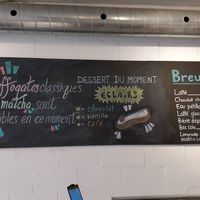 ffogatos classiques
matcha sont
bles en ce moment
DESSERT DU MOMENT
ECLAIRS
chocolat
vanille
café
Breu
Latté
Chocolat ch
Eau pétill
Latté glac
Bière dép
Bec cola
Limonade
matcha L